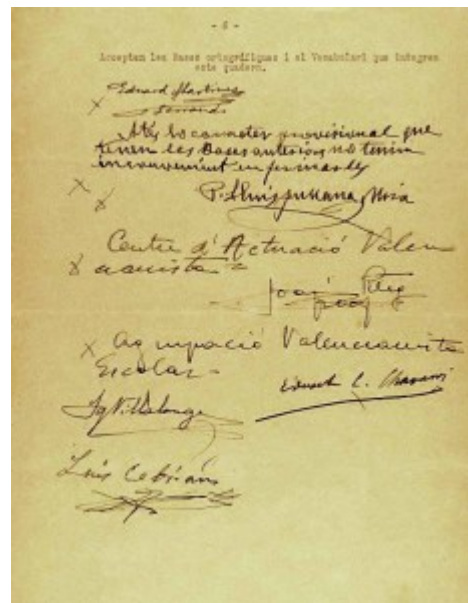 - 4 -
Accepten les Bases ortogràfiques i el Vocabulari que integren
este quadern.
Eduard Martínez
Ferrando
Atés lo caracter provisional que
tenen les Bases anteriors no tenim
inconvenient en firmarles
P. Lluis Fullana Mira
Centre d'Actuació Valen
cianista
Joan
Agrupació Valencianista
Escolar
Eduard L. Chavarri
Ig Villalonga
Luis Cebrián